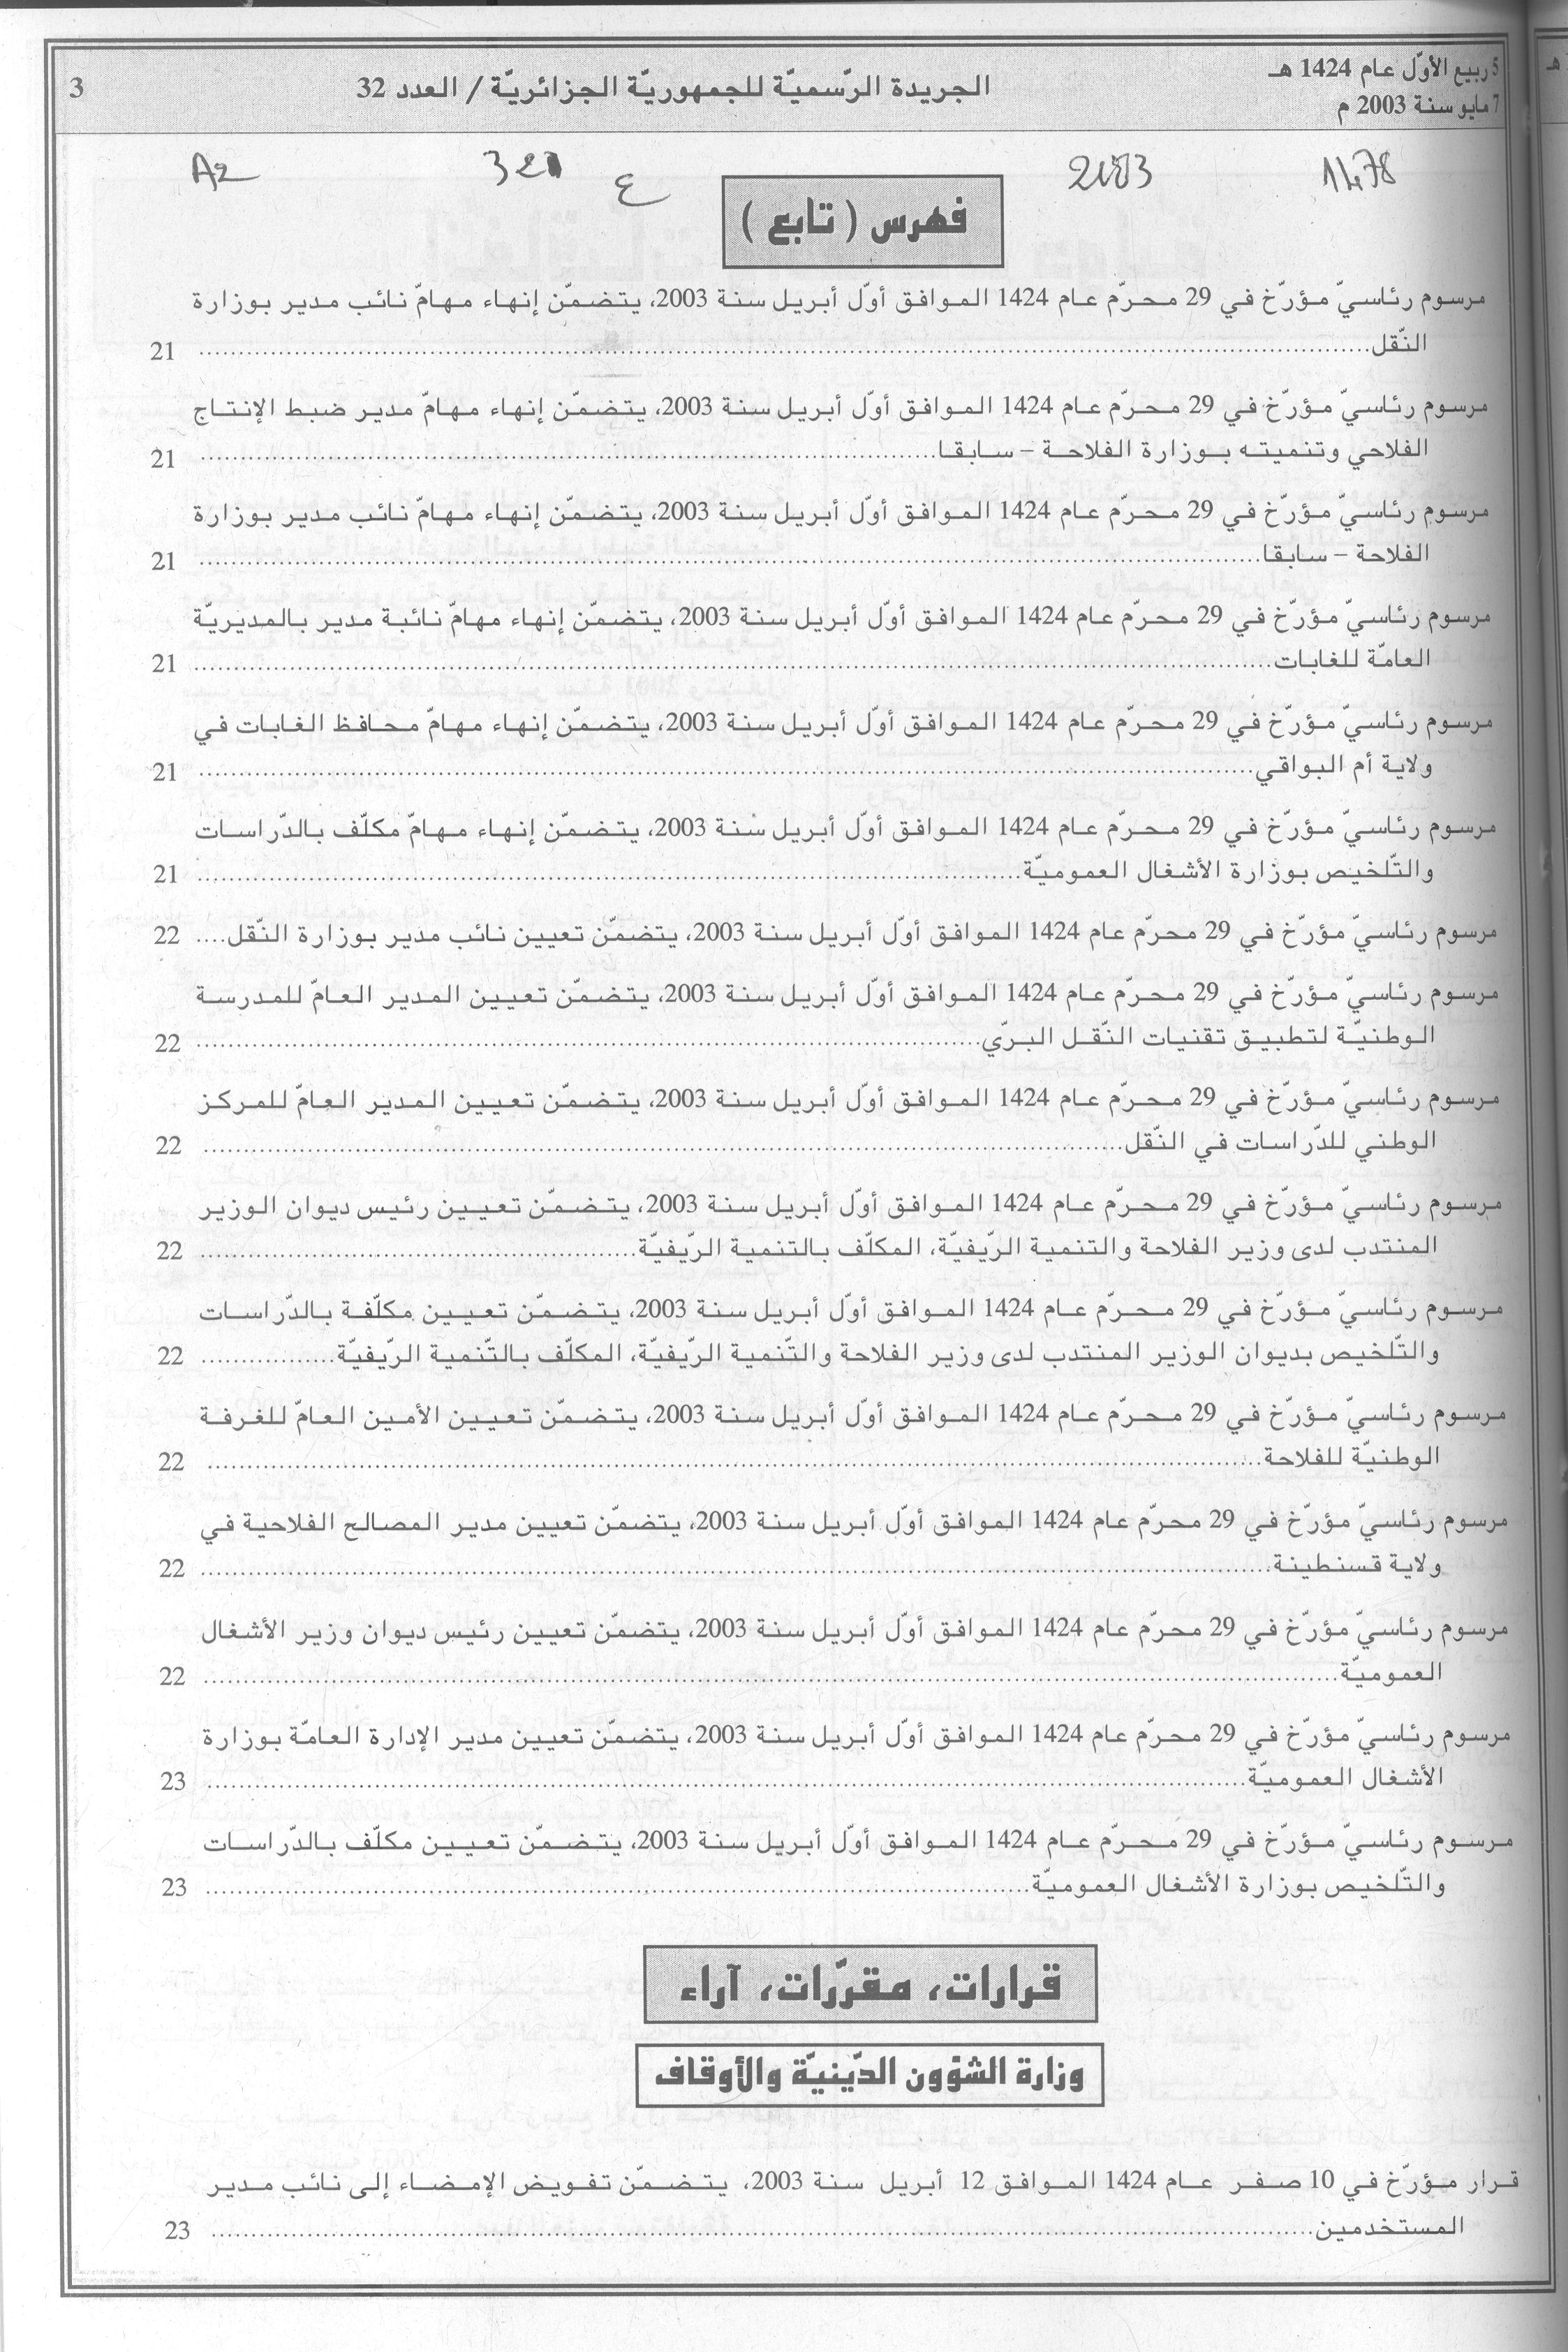 5 ربيع الأوّل عام 1424 هـ
7 مايو سنة 2003 م
الجريدة الرّسميّة للجمهوريّة الجزائريّة / العدد 32
3
1478
2003
ع
A2
فهرس ( تابع )
مرسوم رئاسيّ مؤرّخ في 29 محرّم عام 1424 الموافق أوّل أبريل سنة 2003، يتضمّن إنهاء مهامّ نائب مدير بوزارة
النّقل.................... 21
مرسوم رئاسيّ مؤرّخ في 29 محرّم عام 1424 الموافق أوّل أبريل سنة 2003، يتضمّن إنهاء مهامّ مدير ضبط الإنتاج
الفلاحي وتنميته بوزارة الفلاحة – سابقا.................... 21
مرسوم رئاسيّ مؤرّخ في 29 محرّم عام 1424 الموافق أوّل أبريل سنة 2003، يتضمّن إنهاء مهامّ نائب مدير بوزارة
الفلاحة – سابقا.................... 21
مرسوم رئاسيّ مؤرّخ في 29 محرّم عام 1424 الموافق أوّل أبريل سنة 2003، يتضمّن إنهاء مهامّ نائبة مدير بالمديريّة
العامّة للغابات.................... 21
مرسوم رئاسيّ مؤرّخ في 29 محرّم عام 1424 الموافق أوّل أبريل سنة 2003، يتضمّن إنهاء مهامّ محافظ الغابات في
ولاية أم البواقي.................... 21
مرسوم رئاسيّ مؤرّخ في 29 محرّم عام 1424 الموافق أوّل أبريل سنة 2003، يتضمّن إنهاء مهامّ مكلّف بالدّراسات
والتّلخيص بوزارة الأشغال العموميّة.................... 21
مرسوم رئاسيّ مؤرّخ في 29 محرّم عام 1424 الموافق أوّل أبريل سنة 2003، يتضمّن تعيين نائب مدير بوزارة النّقل.... 22
مرسوم رئاسيّ مؤرّخ في 29 محرّم عام 1424 الموافق أوّل أبريل سنة 2003، يتضمّن تعيين المدير العامّ للمدرسة
الوطنيّة لتطبيق تقنيات النّقل البرّي.................... 22
مرسوم رئاسيّ مؤرّخ في 29 محرّم عام 1424 الموافق أوّل أبريل سنة 2003، يتضمّن تعيين المدير العامّ للمركز
الوطني للدّراسات في النّقل.................... 22
مرسوم رئاسيّ مؤرّخ في 29 محرّم عام 1424 الموافق أوّل أبريل سنة 2003، يتضمّن تعيين رئيس ديوان الوزير
المنتدب لدى وزير الفلاحة والتنمية الرّيفيّة، المكلّف بالتنمية الرّيفيّة.................... 22
مرسوم رئاسيّ مؤرّخ في 29 محرّم عام 1424 الموافق أوّل أبريل سنة 2003، يتضمّن تعيين مكلّفة بالدّراسات
والتّلخيص بديوان الوزير المنتدب لدى وزير الفلاحة والتّنمية الرّيفيّة، المكلّف بالتّنمية الرّيفيّة................ 22
مرسوم رئاسيّ مؤرّخ في 29 محرّم عام 1424 الموافق أوّل أبريل سنة 2003، يتضمّن تعيين الأمين العامّ للغرفة
الوطنيّة للفلاحة.................... 22
مرسوم رئاسيّ مؤرّخ في 29 محرّم عام 1424 الموافق أوّل أبريل سنة 2003، يتضمّن تعيين مدير المصالح الفلاحية في
ولاية قسنطينة.................... 22
مرسوم رئاسيّ مؤرّخ في 29 محرّم عام 1424 الموافق أوّل أبريل سنة 2003، يتضمّن تعيين رئيس ديوان وزير الأشغال
العموميّة.................... 22
مرسوم رئاسيّ مؤرّخ في 29 محرّم عام 1424 الموافق أوّل أبريل سنة 2003، يتضمّن تعيين مدير الإدارة العامّة بوزارة
الأشغال العموميّة.................... 23
مرسوم رئاسيّ مؤرّخ في 29 محرّم عام 1424 الموافق أوّل أبريل سنة 2003، يتضمّن تعيين مكلّف بالدّراسات
والتّلخيص بوزارة الأشغال العموميّة.................... 23
قرارات، مقرّرات، آراء
وزارة الشؤون الدّينيّة والأوقاف
قرار مؤرّخ في 10 صفر عام 1424 الموافق 12 أبريل سنة 2003، يتضمّن تفويض الإمضاء إلى نائب مدير
المستخدمين.................... 23